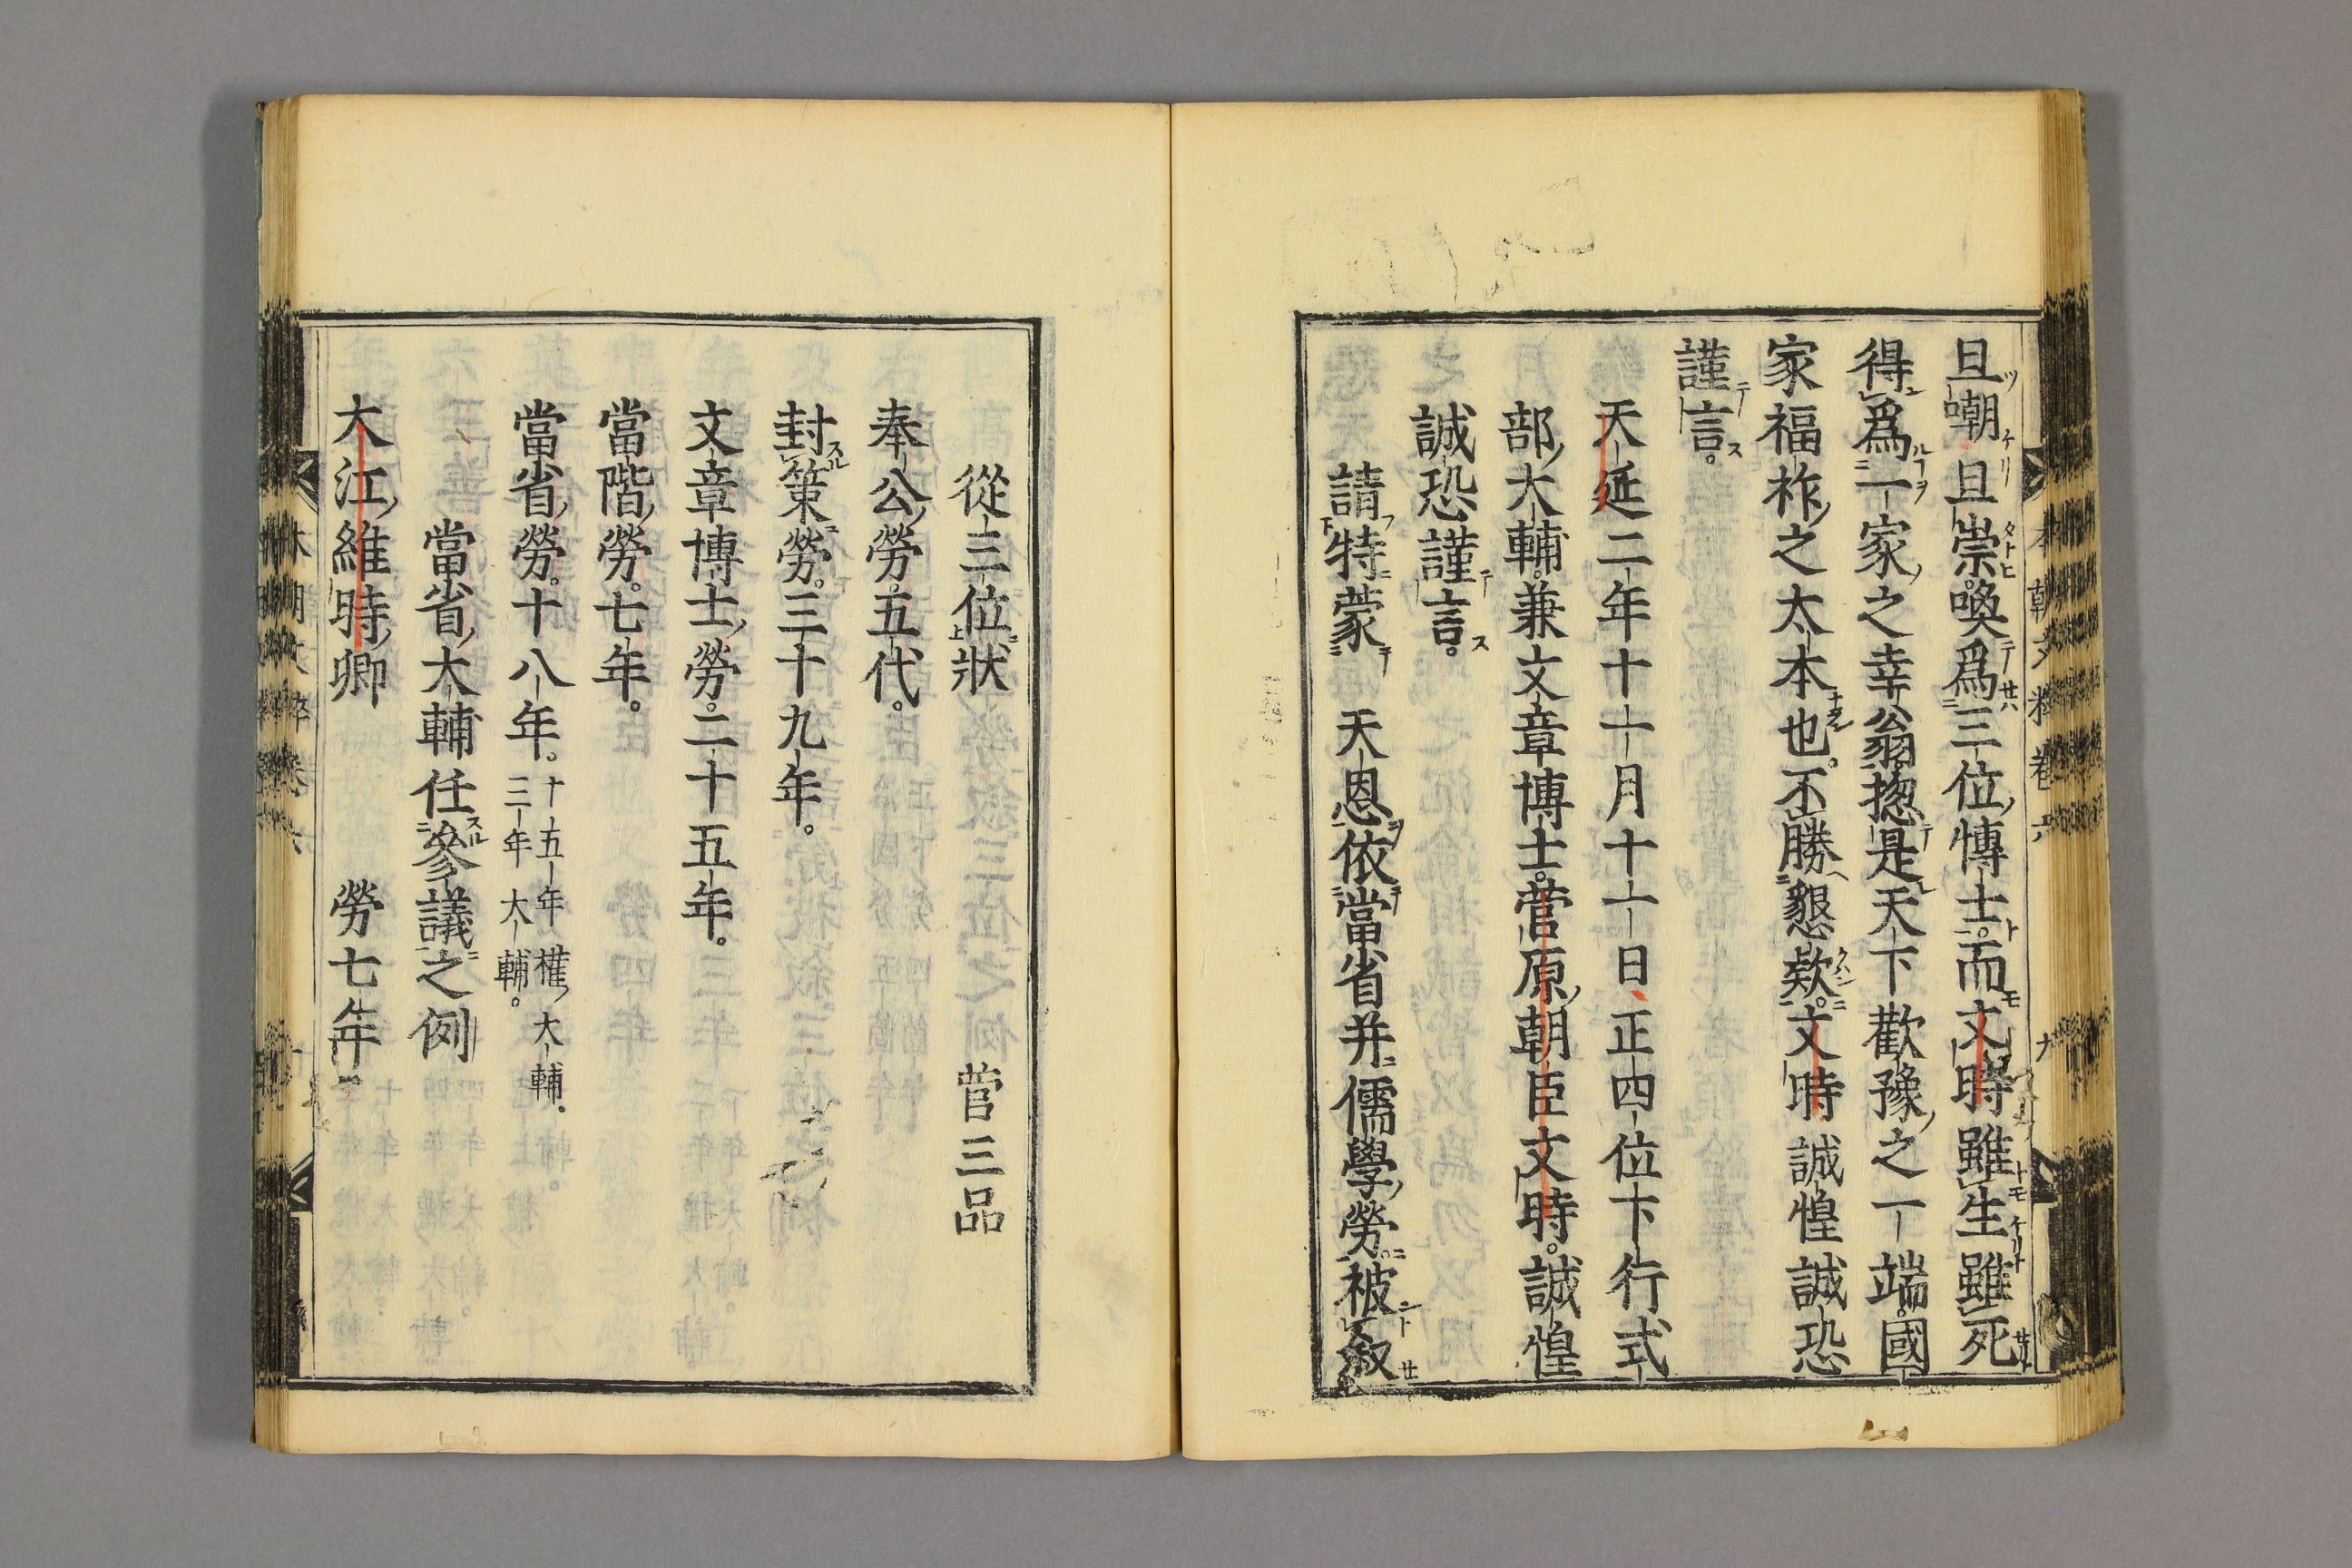 旦嘲旦崇喚爲三位博士而文時雖生雖死
得爲一家之幸翁惣是天下歡豫之一端國
家福祚之太本也不勝懇欵文時誠惶誠恐
謹言。
天延二年十一月十一日正四位下行式
部大輔兼文章博士菅原朝臣文時。誠惶
誠恐謹言。
請特蒙 天恩依當省并儒學勞被叙
從三位狀 菅三品
奉公勞。五代。
封策勞。三十九年。
文章博士勞。二十五年。
當階勞。七年。
當省勞。十八年。十五年權大輔
三年大輔。
當省大輔任參議之例
大江維時卿 勞七年
本朝文粹卷六